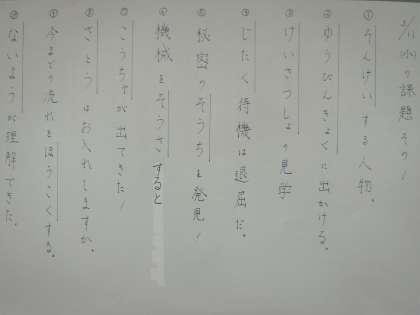 2/11(小)の課題その1
① そんけいする人物。
② ゆうびんきょくに出かける。
③ けいさつしょの見学
④ じたく待機は退屈だ。
⑤ 秘密のそうちを発見！
⑥ 機械をそうさすると
⑦ こうちゃが出てきた！
⑧ さとうはお入れしますか。
⑨ 今までの流れをほうこくする。
⑩ ないようが理解できた。